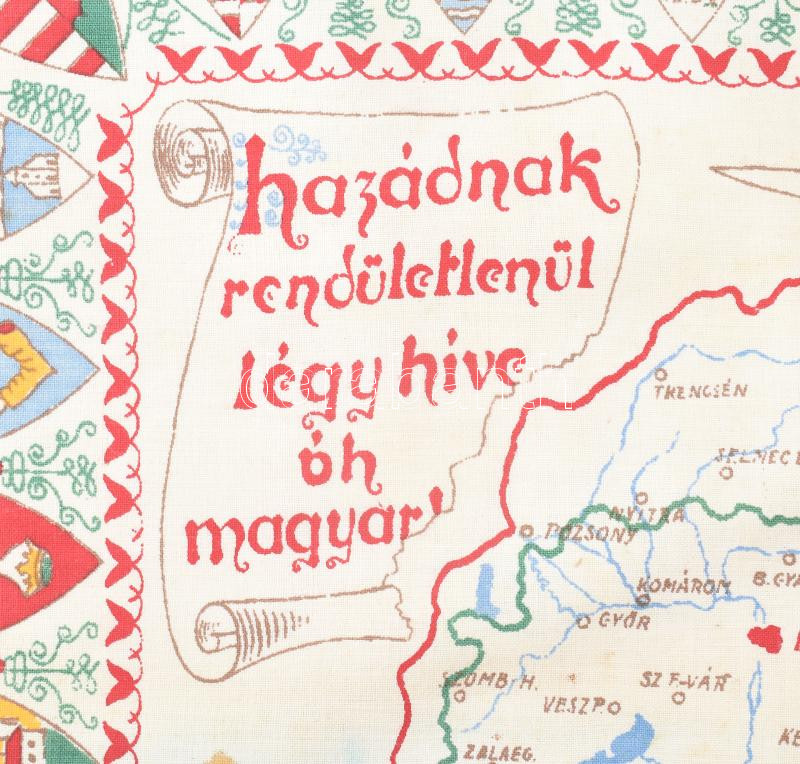 hazádnak
rendületlenül
légy híve
óh
magyar!
TRENCSÉN
NYITRA
POZSONY
KOMÁROM
GYŐR
SZOMB.H.
SZ.F-VÁR
VESZP.
ZALAEG.